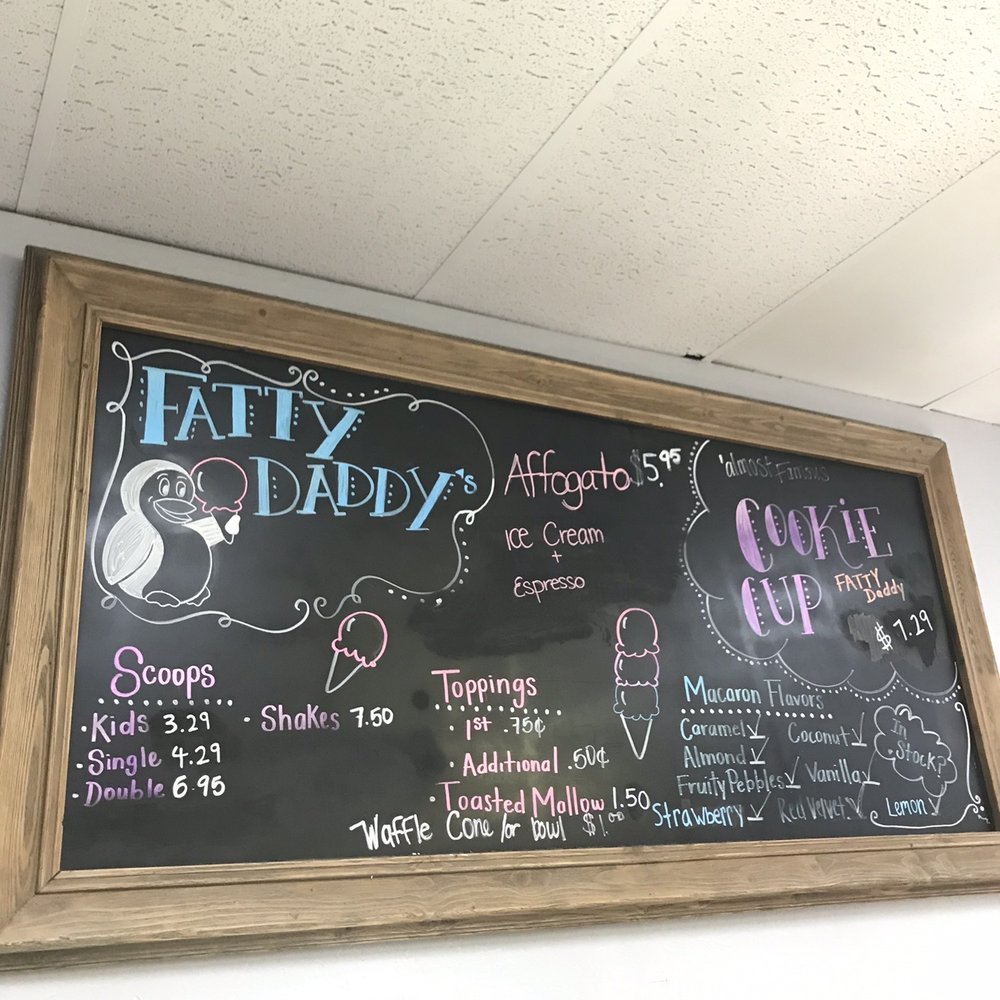 FATTY
DADDY's
Affogato $5.95
ICE Cream
+
Espresso
'almost Famous
COOKIE
CUP
FATTY
Daddy
$ 7.29
Scoops
· Kids 3.29
· Single 4.29
· Double 6.95
· Shakes 7.50
Toppings
· 1st .75¢
· Additional .50¢
· Toasted Mallow 1.50
Waffle Cone /or bowl $1.00
Macaron Flavors
Caramel ✓ Coconut ✓
Almond ✓
Fruity Pebbles ✓ Vanilla ✓
Strawberry ✓ Red Velvet ✓ Lemon ✓
In
Stock?